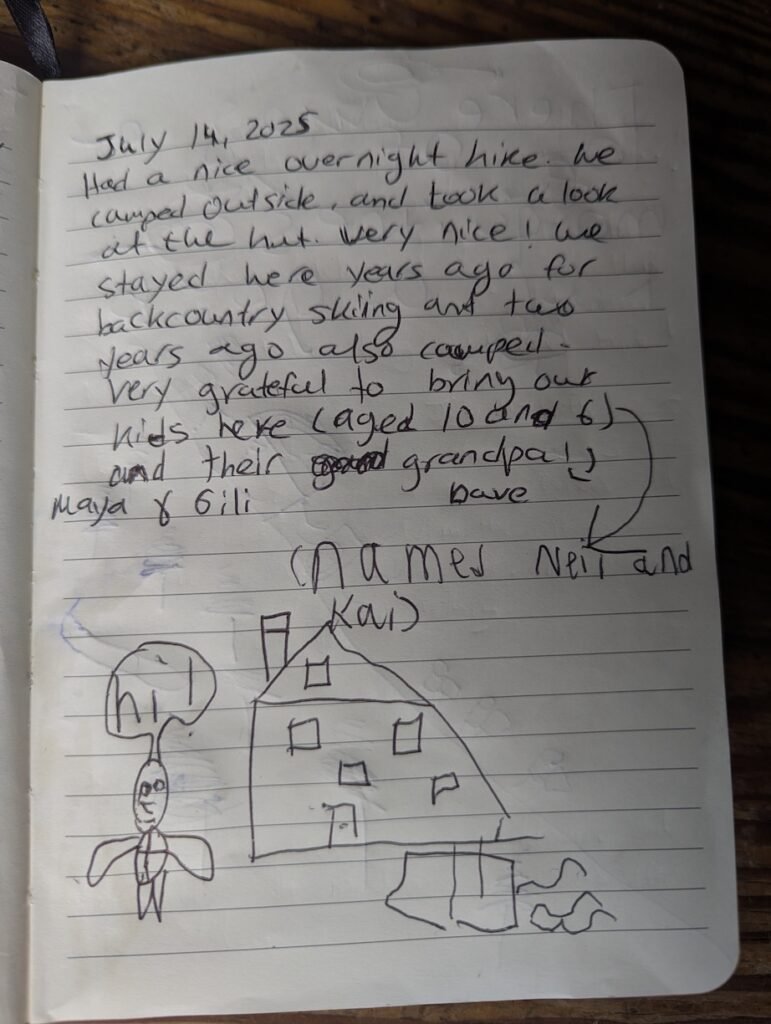 July 14, 2025
Had a nice overnight hike. We
camped outside, and took a look
at the hut. Very nice! We
stayed here years ago for
backcountry skiing and two
years ago also camped.
Very grateful to bring our
kids here (aged 10 and 6)
and their grandpa!)
Maya & Gili Dave
(names Neil and
Kai)
hi!